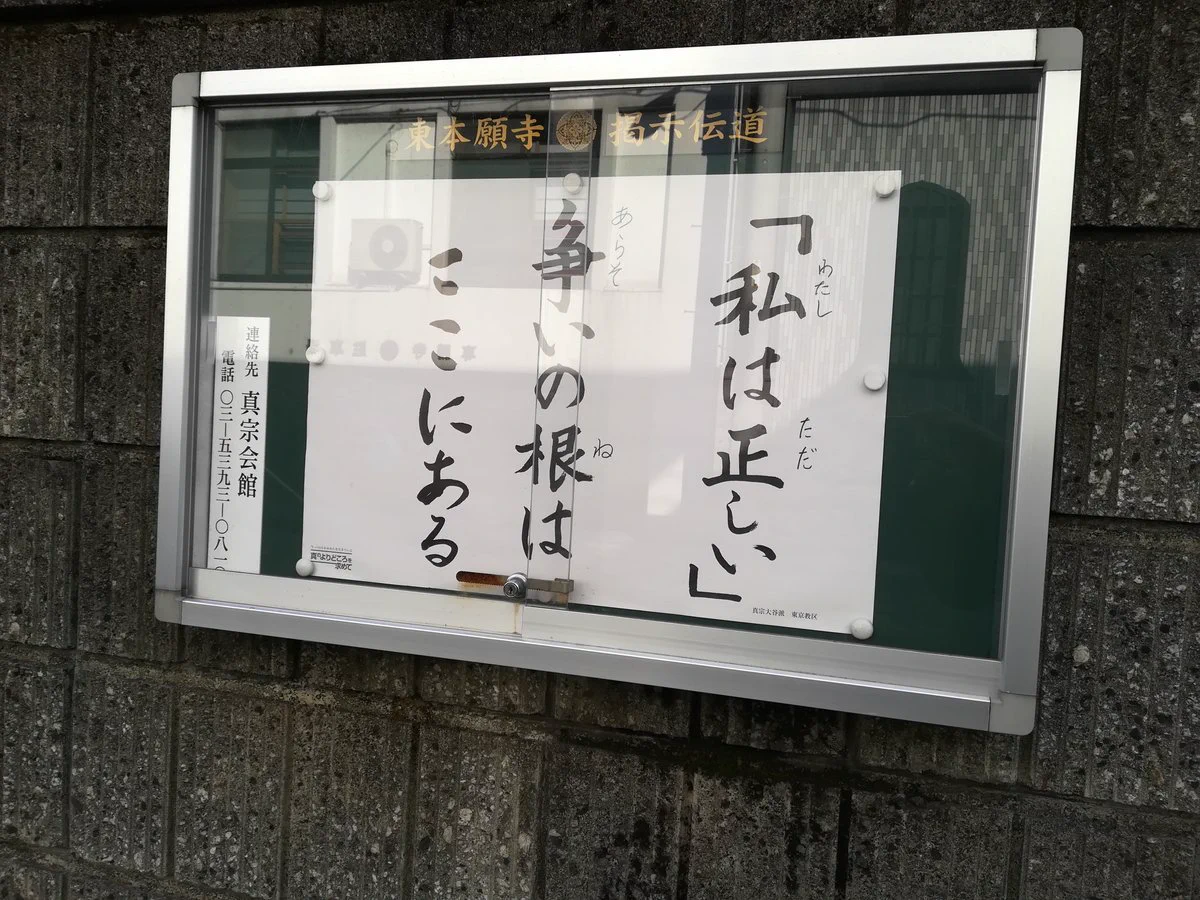 東本願寺 掲示伝道
「私は正しい」
わたし
ただ
争いの根は
あらそ
ね
ここにある
真宗大谷派 東京教区
真のよりどころを
求めて
連絡先 真宗会館
電話 〇三―五三九三―〇八一